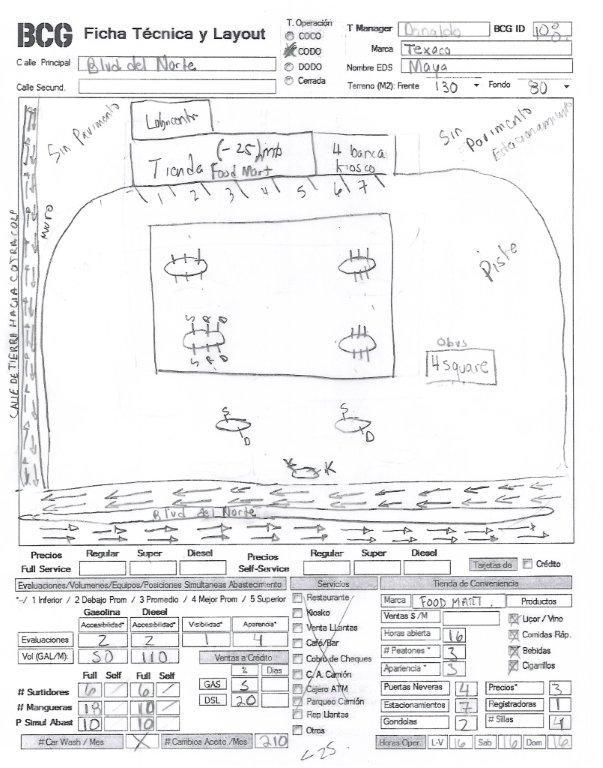 BCG Ficha Técnica y Layout
T. Operación
COCO
CODO
DODO
Cerrada
T Manager Donaldo BCG ID 100
Marca Texaco
Calle Principal Blvd del Norte
Nombre EDS Maya
Calle Secund.
Terreno (M2): Frente 130 Fondo 80
Sin Pavimento
Lubricentro
(-25) mb
Tienda Food Mart
4 barca
kiosco
Sin Pavimento
Estacionamiento
1 2 3 4 5 6 7
MURO
CALLE DE TIERRA HACIA COTRACOLP
Pista
S R D
S R D
Obus
4 square
S
D
S
D
K K
Blvd del Norte
Precios Regular Super Diesel Precios Regular Super Diesel
Full Service Self-Service
Tarjetas de Crédito
Evaluaciones/Volumenes/Equipos/Posiciones Simultaneas Abastecimento
*-/ 1 Inferior / 2 Debajo Prom / 3 Promedio / 4 Mejor Prom / 5 Superior
Gasolina Diesel
Accesibilidad* Accesibilidad* Visibilidad* Aparencia*
Evaluaciones 2 2 1 4
Vol (GAL/M): 50 110
Full Self Full Self
# Surtidores 6 / 6 /
# Mangueras 18 / 10 /
P Simul Abast 10 10
# Car Wash / Mes X # Cambios Aceite /Mes 210
Ventas a Crédito
% Dias
GAS 5
DSL 20
Servicios
Restaurante
Kiosko
Venta Llantas
Café/Bar
Cobro de Cheques
C. A. Camión
Cajero ATM
Parqueo Camión
Rep Llantas
Otros
L-25.
Tienda de Conveniencia
Marca FOOD MART. Productos
Ventas $ /M
Horas abierta 16
# Peatones * 3
Apariencia * 3
Licor / Vino
Comidas Ráp.
Bebidas
Cigarrillos
Puertas Neveras 4 Precios* 3
Estacionamientos 7 Registradoras 1
Gondolas 2 # Sillas 4
Horas Oper. L-V 16 Sab 16 Dom 16